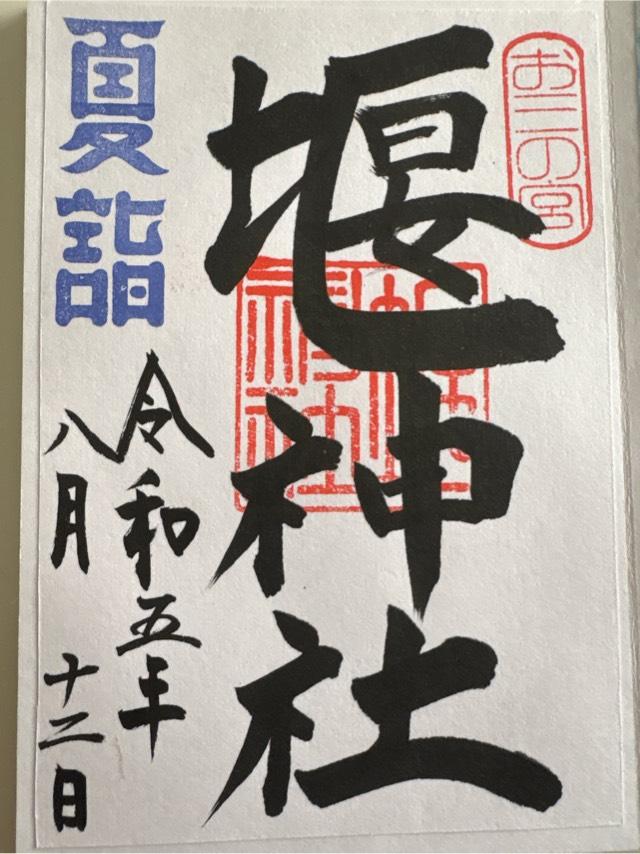 お三の宮
堰神社
夏詣
令和五年
八月十二日
堰神社